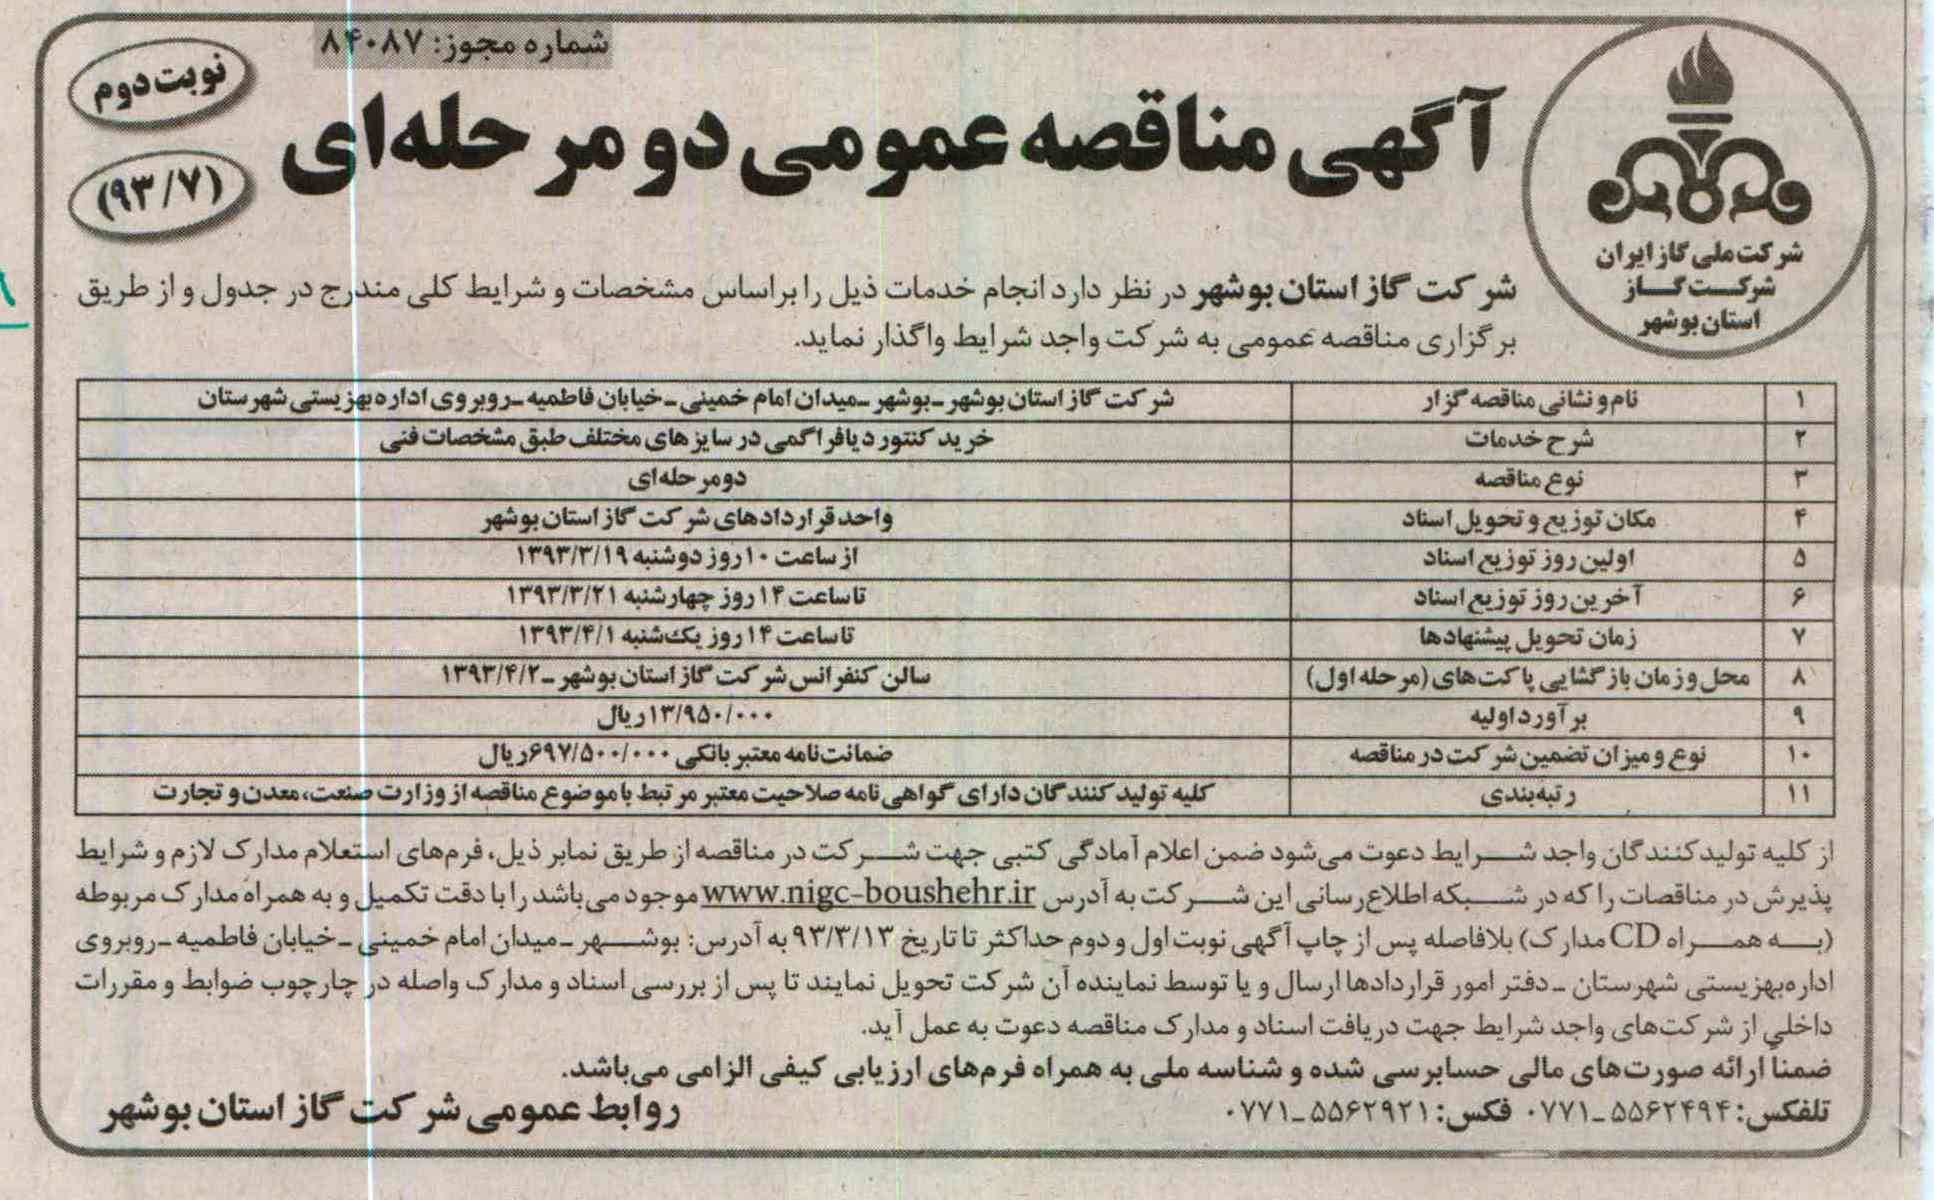 شماره مجوز: ۸۴۰۸۷
نوبت دوم
آگهی مناقصه عمومی دو مرحله‌ای
(۹۳/۷)
شرکت ملی گاز ایران
شرکت گاز
استان بوشهر
شرکت گاز استان بوشهر در نظر دارد انجام خدمات ذیل را براساس مشخصات و شرایط کلی مندرج در جدول و از طریق
برگزاری مناقصه عمومی به شرکت واجد شرایط واگذار نماید.
۱ نام و نشانی مناقصه گزار شرکت گاز استان بوشهر ـ بوشهر ـ میدان امام خمینی ـ خیابان فاطمیه ـ روبروی اداره بهزیستی شهرستان
۲ شرح خدمات خرید کنتور دیافراگمی در سایزهای مختلف طبق مشخصات فنی
۳ نوع مناقصه دومرحله‌ای
۴ مکان توزیع و تحویل اسناد واحد قراردادهای شرکت گاز استان بوشهر
۵ اولین روز توزیع اسناد از ساعت ۱۰ روز دوشنبه ۱۳۹۳/۳/۱۹
۶ آخرین روز توزیع اسناد تا ساعت ۱۴ روز چهارشنبه ۱۳۹۳/۳/۲۱
۷ زمان تحویل پیشنهادها تا ساعت ۱۴ روز یک‌شنبه ۱۳۹۳/۴/۱
۸ محل و زمان بازگشایی پاکت‌های (مرحله اول) سالن کنفرانس شرکت گاز استان بوشهر ـ ۱۳۹۳/۴/۲
۹ برآورد اولیه ۱۳/۹۵۰/۰۰۰ ریال
۱۰ نوع و میزان تضمین شرکت در مناقصه ضمانت‌نامه معتبر بانکی ۶۹۷/۵۰۰/۰۰۰ ریال
۱۱ رتبه‌بندی کلیه تولید کنندگان دارای گواهی نامه صلاحیت معتبر مرتبط با موضوع مناقصه از وزارت صنعت، معدن و تجارت
از کلیه تولیدکنندگان واجد شرایط دعوت می‌شود ضمن اعلام آمادگی کتبی جهت شرکت در مناقصه از طریق نمابر ذیل، فرم‌های استعلام مدارک لازم و شرایط
پذیرش در مناقصات را که در شبکه اطلاع رسانی این شرکت به آدرس www.nigc-boushehr.ir موجود می‌باشد را با دقت تکمیل و به همراه مدارک مربوطه
(به همراه CD مدارک) بلافاصله پس از چاپ آگهی نوبت اول و دوم حداکثر تا تاریخ ۹۳/۳/۱۳ به آدرس: بوشهر ـ میدان امام خمینی ـ خیابان فاطمیه ـ روبروی
اداره بهزیستی شهرستان ـ دفتر امور قراردادها ارسال و یا توسط نماینده آن شرکت تحویل نمایند تا پس از بررسی اسناد و مدارک واصله در چارچوب ضوابط و مقررات
داخلی از شرکت‌های واجد شرایط جهت دریافت اسناد و مدارک مناقصه دعوت به عمل آید.
ضمناً ارائه صورت‌های مالی حسابرسی شده و شناسه ملی به همراه فرم‌های ارزیابی کیفی الزامی می‌باشد.
تلفکس: ۵۵۶۲۴۹۴-۰۷۷۱ فکس: ۵۵۶۲۹۲۱-۰۷۷۱
روابط عمومی شرکت گاز استان بوشهر